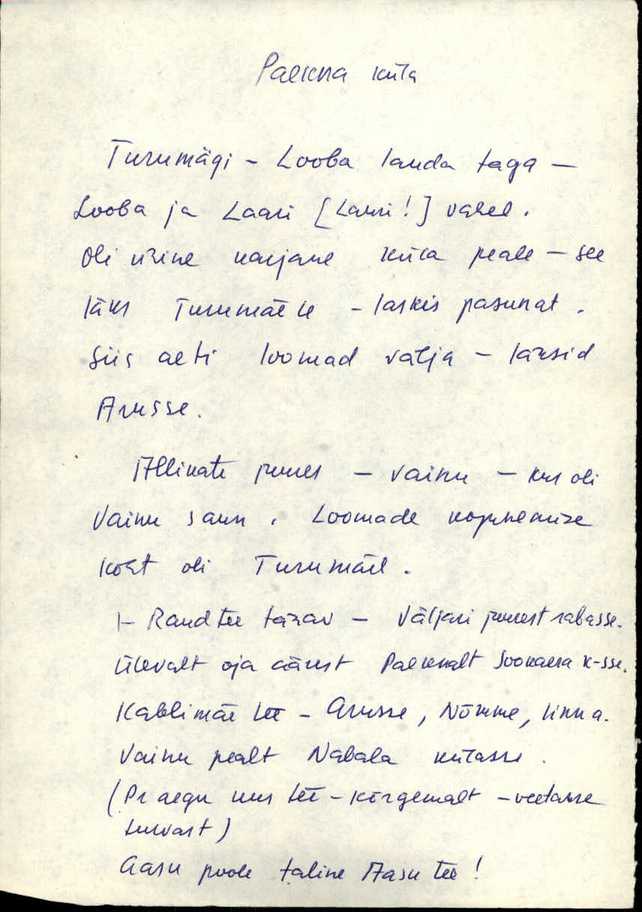 Paekna küla
Turumägi - Looba lauda taga -
Looba ja Laari [Lauri!] vahel.
Oli ühine karjane küla peale - see
läks Turumäele - laskis pasunat.
Siis aeti loomad välja - läksid
Arusse.
Allikate juures - vainu - kus oli
Vainu saun. Loomade kogunemise
koht oli Turumäel.
Raudtee tänav - Väljari juurest rabasse.
Ülevalt oja äärest Paeknalt Sookaera k-sse.
Kablimäe tee - Arusse, Nõmme, linna.
Vainu pealt Nabala külasse.
(Praegu uus tee - kõrgemalt - veetakse
turvast)
Aasu poole taline Aasu tee!